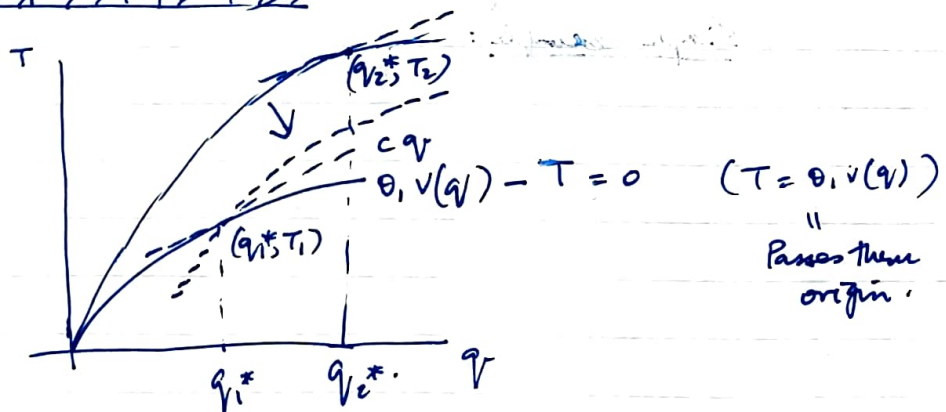 T
(q₂*, T₂)
cq
θ₁ v(q) - T = 0 (T = θ₁ v(q))
"
Passes thru
origin.
(q₁*, T₁)
q₁* q₂*. q